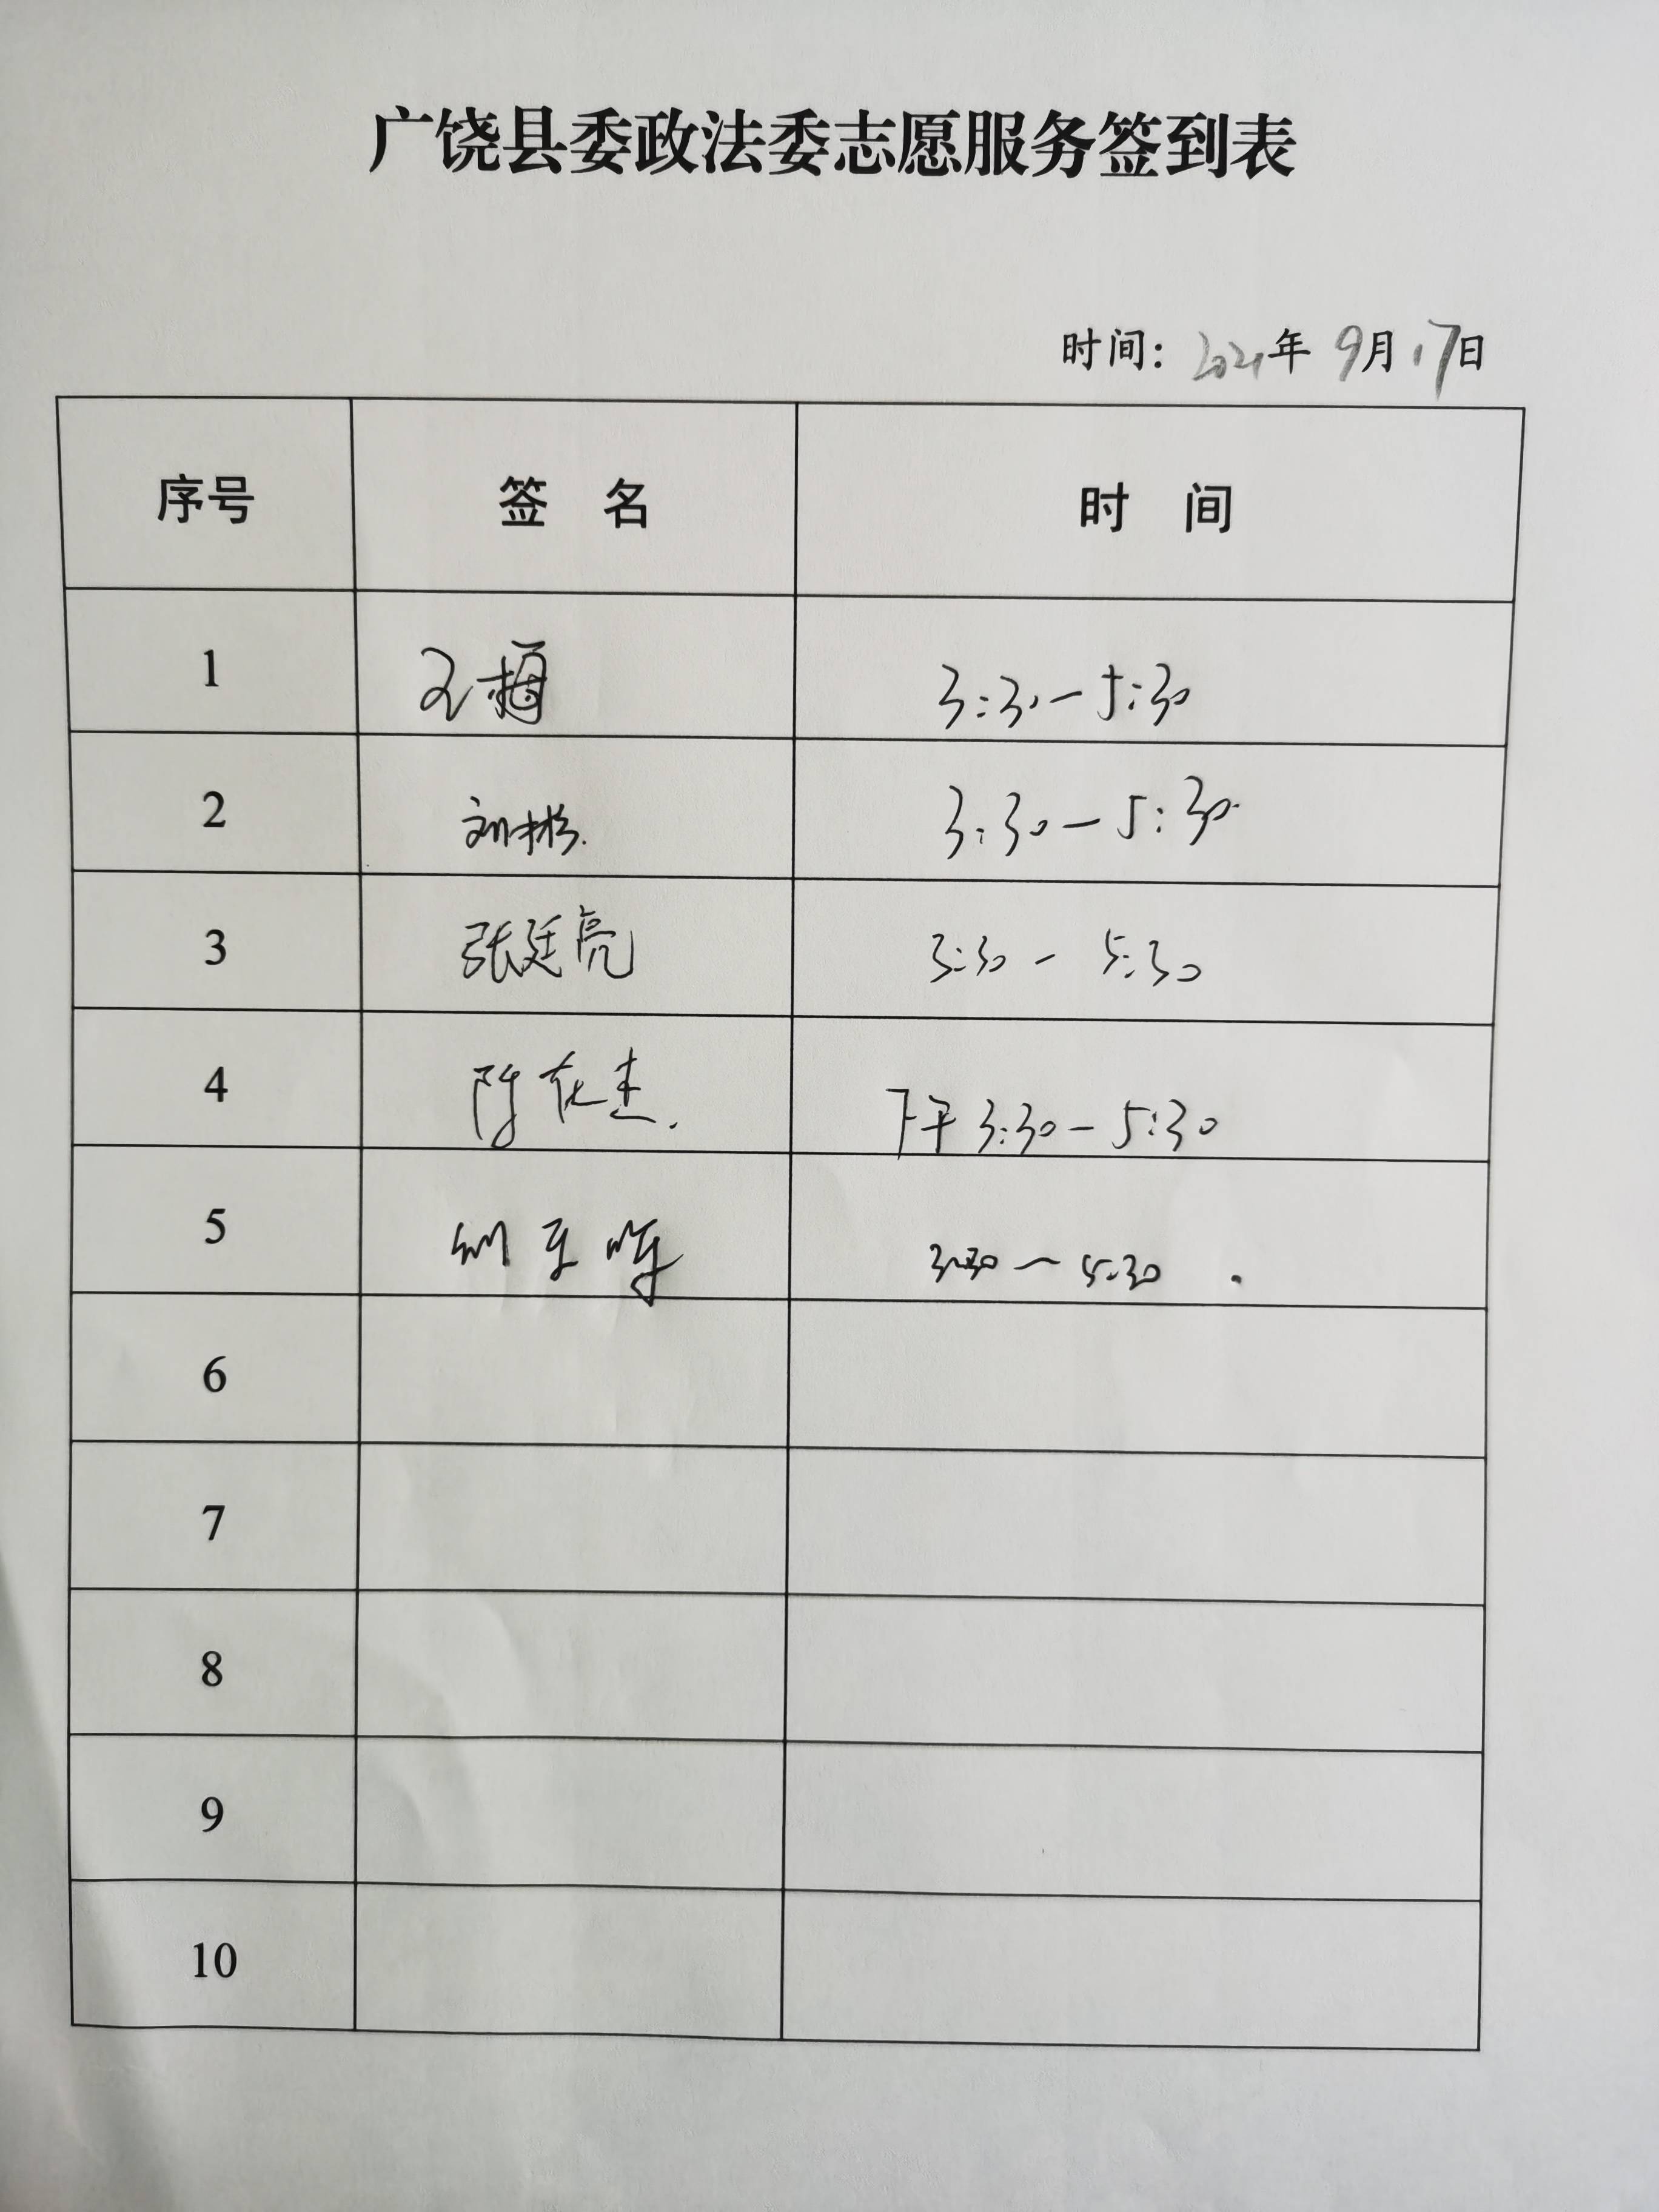 广饶县委政法委志愿服务签到表
时间: 2021年 9月17日
序号 签 名 时 间
1 3:30-5:30
2 刘彬. 3:30-5:30
3 张廷亮 3:30-5:30
4 下午3:30-5:30
5 3:30-5:30
6
7
8
9
10